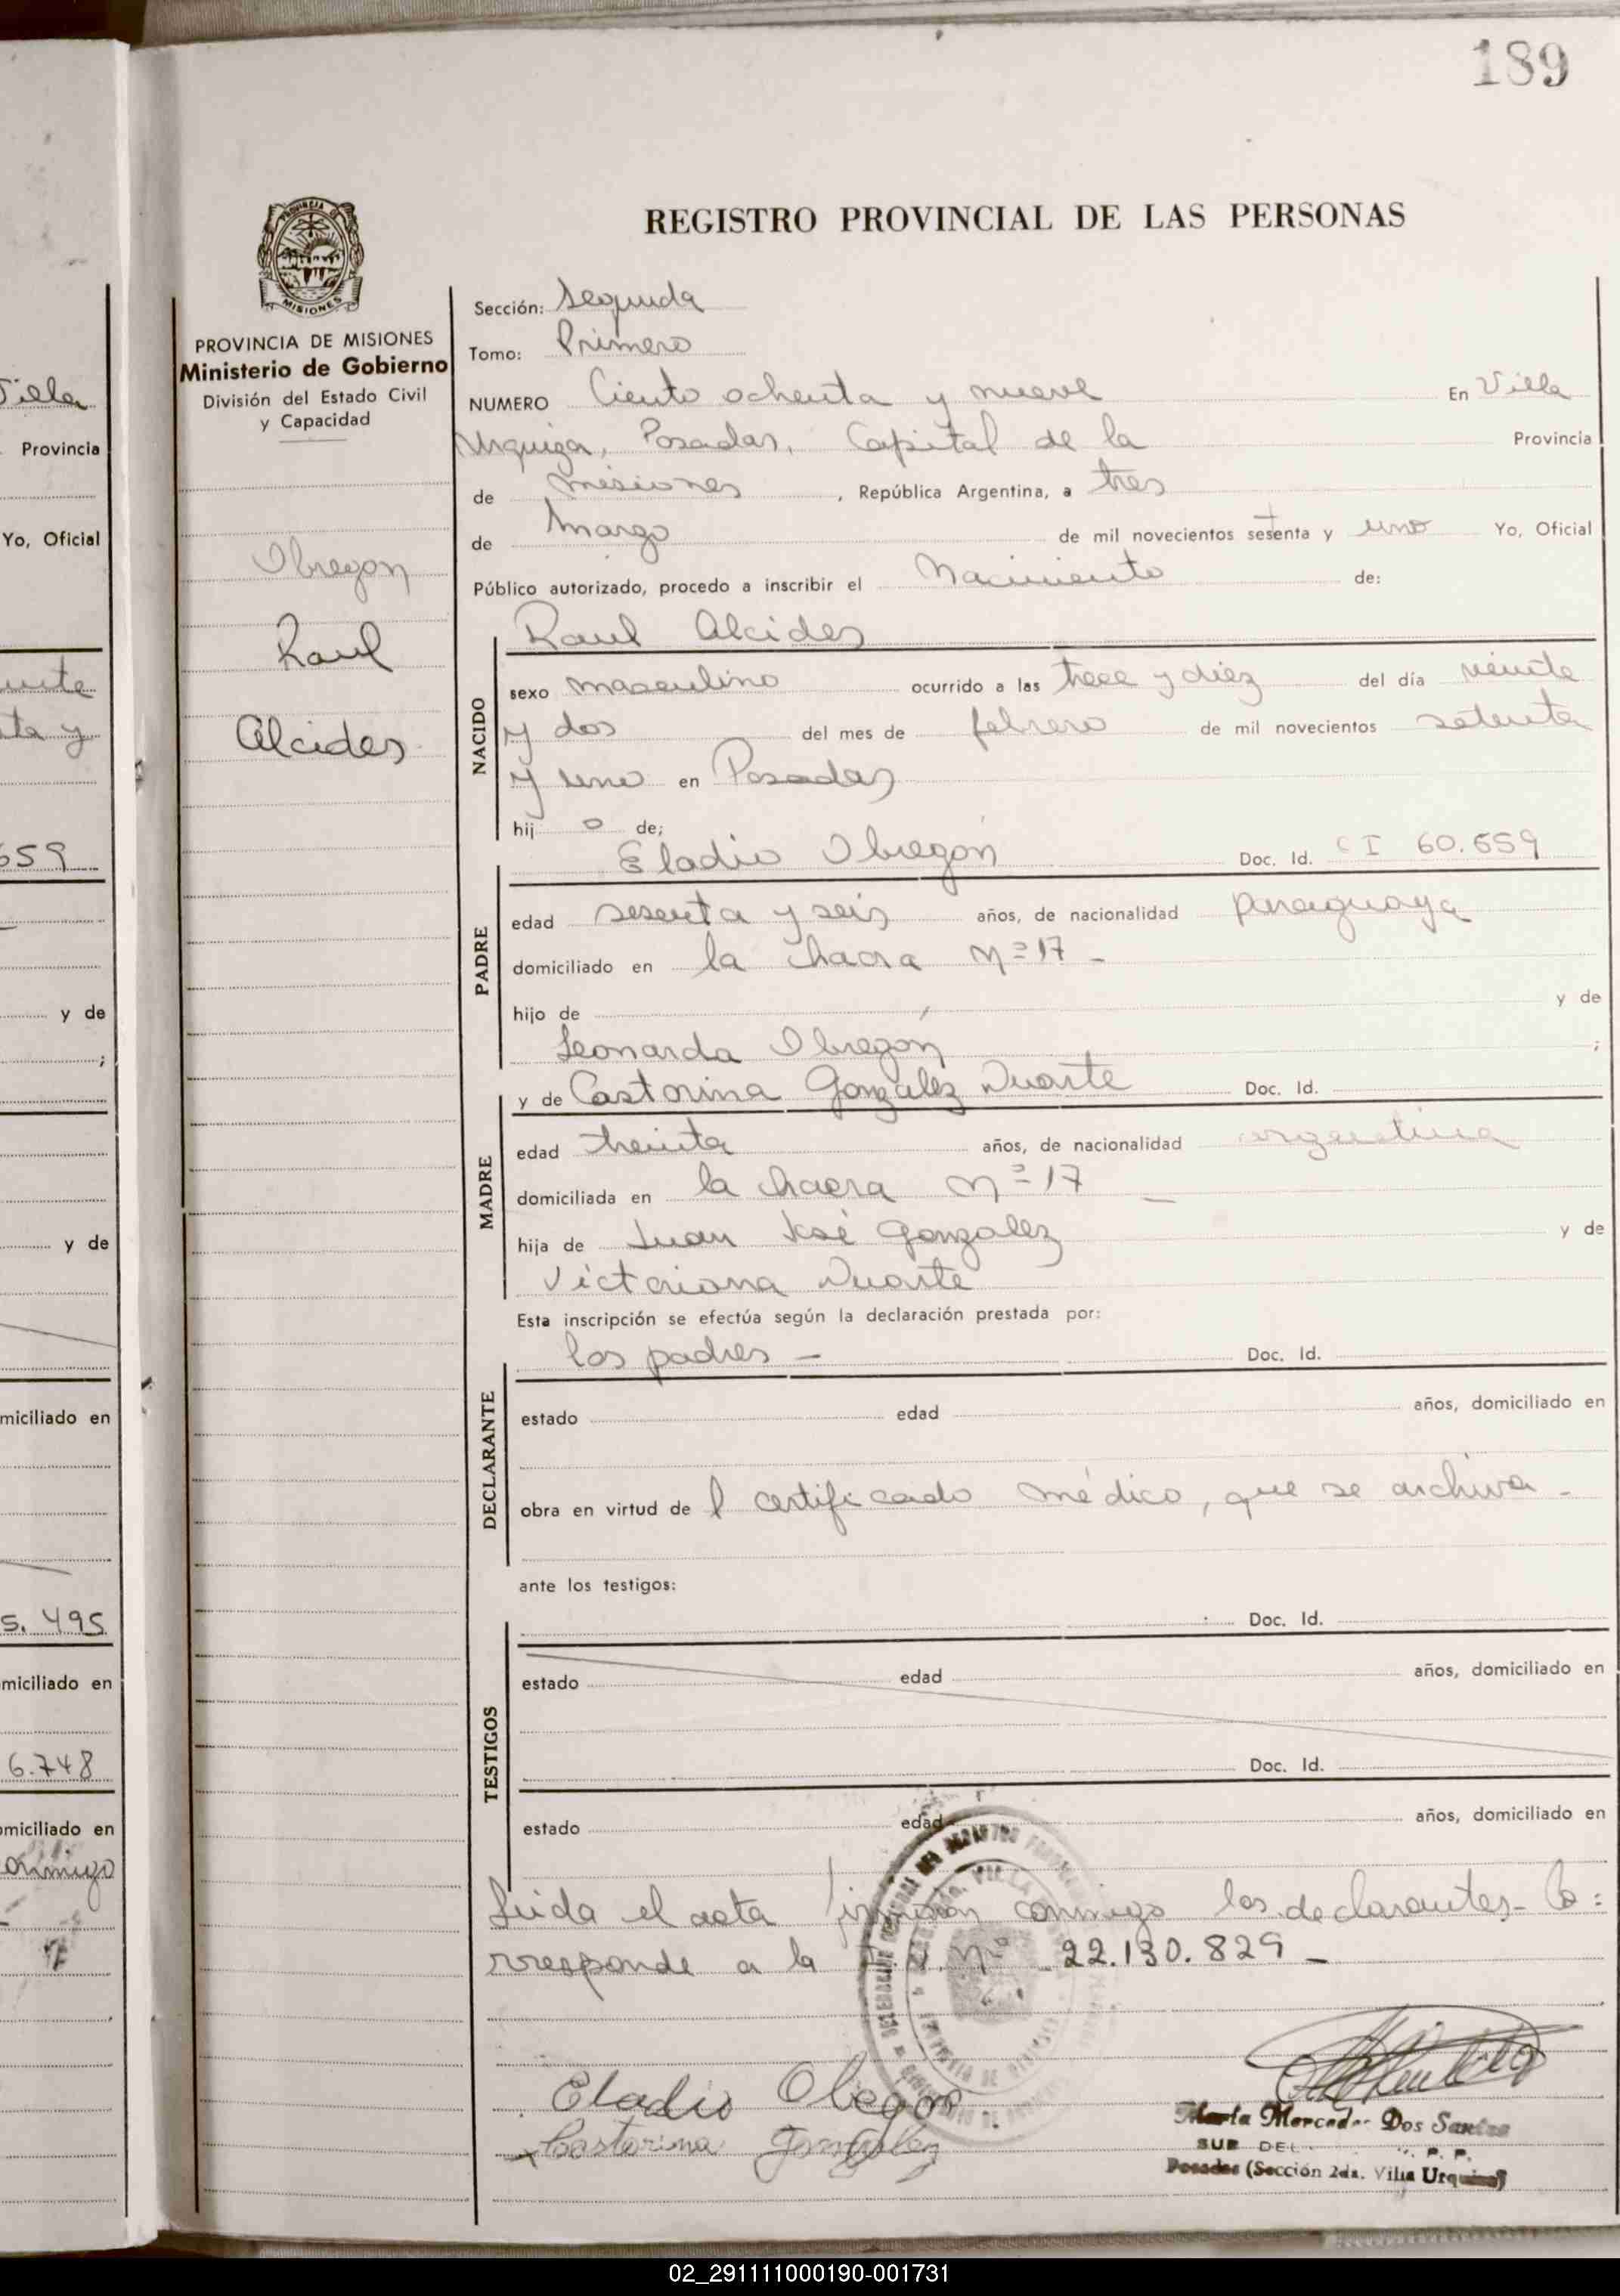 189
REGISTRO PROVINCIAL DE LAS PERSONAS
MISIONES
PROVINCIA DE MISIONES
Ministerio de Gobierno
División del Estado Civil
y Capacidad
Obregon
Raul
Alcides
Sección: Segunda
Tomo: Primero
NUMERO Ciento ochenta y nueve En Villa
Urquiza, Posadas, Capital de la Provincia
de Misiones, República Argentina, a tres
de Marzo de mil novecientos setenta y uno Yo, Oficial
Público autorizado, procedo a inscribir el Nacimiento de:
Raul Alcides
NACIDO
sexo masculino ocurrido a las trece y diez del día veinte
y dos del mes de febrero de mil novecientos setenta
y uno en Posadas
hij o de;
Eladio Obregón Doc. Id. CI 60.559
PADRE
edad sesenta y seis años, de nacionalidad paraguaya
domiciliado en la chacra Nº 17 -
hijo de y de
Leonarda Obregón ;
y de Castorina González Duarte Doc. Id.
MADRE
edad treinta años, de nacionalidad argentina
domiciliada en la chacra nº 17 -
hija de Juan José Gonzalez y de
Victoriana Duarte
Esta inscripción se efectúa según la declaración prestada por:
los padres - Doc. Id.
DECLARANTE
estado edad años, domiciliado en
obra en virtud de l certificado médico, que se archiva -
ante los testigos:
Doc. Id.
TESTIGOS
estado edad años, domiciliado en
Doc. Id.
estado edad años, domiciliado en
Leida el acta firman conmigo los declarantes - Co=
rresponde a la Nº 22.130.829 -
Eladio Obregon
x Castorina Gonzalez
Maria Mercedes Dos Santos
SUB DEL. P. P.
Posadas (Sección 2da. Villa Urquiza)
Villa
Provincia
Yo, Oficial
ta y
659
y de
;
y de
miciliado en
5.495
miciliado en
6.748
omiciliado en
02_291111000190-001731